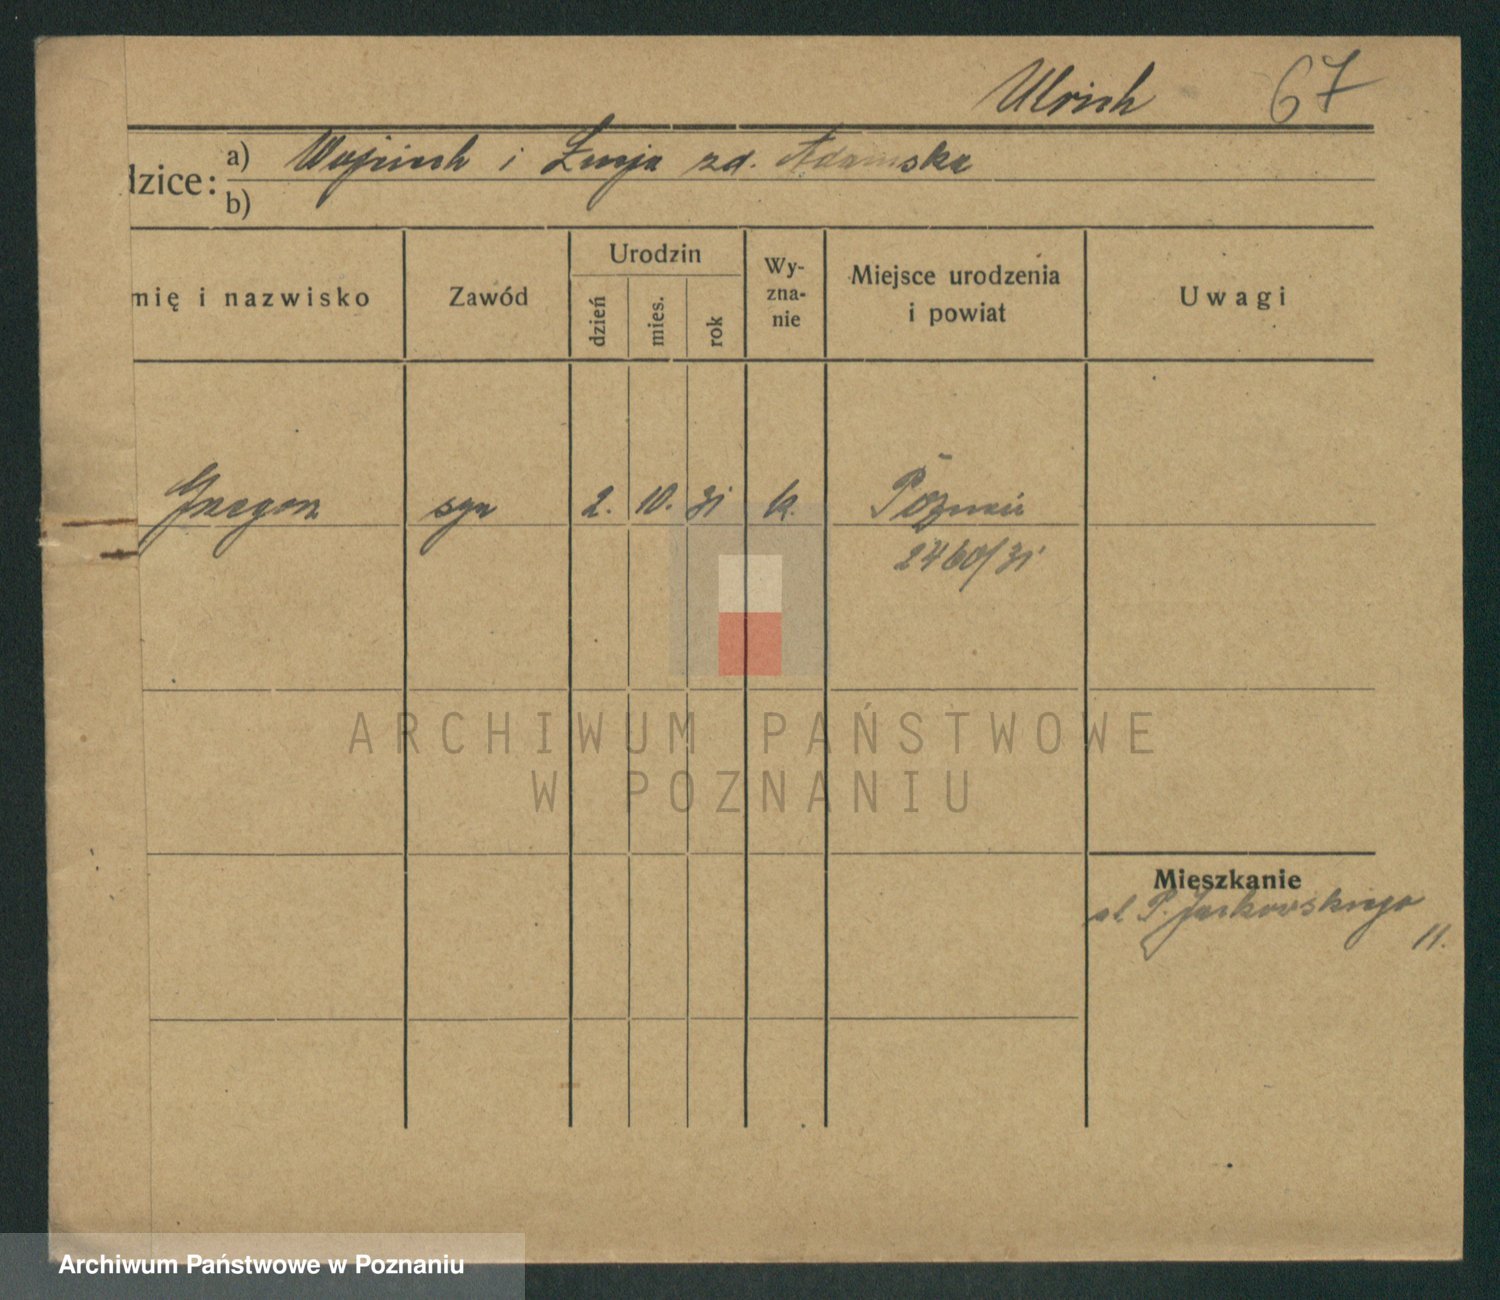 Ulrich 67
dzice: a) Wojciech i Łucja zd. Adamska
b)
mię i nazwisko Zawód Urodzin Wy-
zna-
nie Miejsce urodzenia
i powiat Uwagi
dzień mies. rok
syn 2. 10. 31 k. Poznań
2460/31
ARCHIWUM PAŃSTWOWE
W POZNANIU
Mieszkanie
ul. P. Jackowskiego
11.
Archiwum Państwowe w Poznaniu